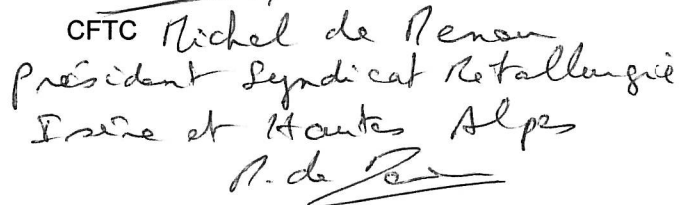 CFTC Michel de Menou
Président Syndicat Métallurgie
Isère et Hautes Alpes
M. de